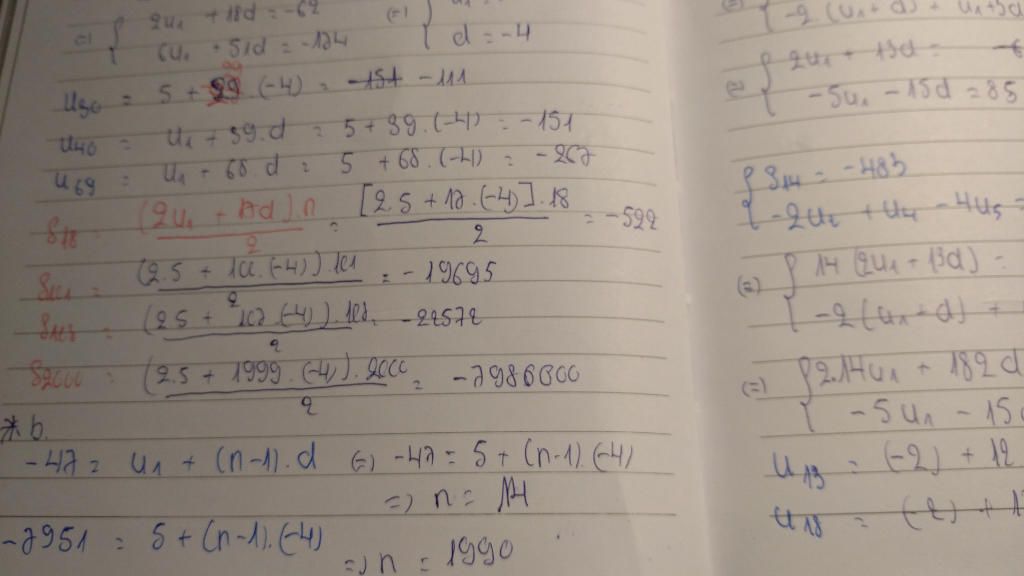 (=) { 2u₁ + 18d = -62 (=) {
6u₁ + 51d = -174 d = -4
u₃₀ = 5 + 29 . (-4) = -111
u₄₀ = u₁ + 39.d = 5 + 39.(-4) = -151
u₆₉ = u₁ + 68.d = 5 + 68.(-4) = -267
S₁₈ = (2u₁ + 17d).n / 2 = [2.5 + 17.(-4)].18 / 2 = -522
S₁₀₁ = (2.5 + 100.(-4)).101 / 2 = -19695
(2.5 + 107.(-4)).108 / 2 = -22572
S₂₀₀₀ = (2.5 + 1999.(-4)).2000 / 2 =
* b.
-47 = u₁ + (n-1).d (=) -47 = 5 + (n-1).(-4)
=) n = 14
-7951 = 5 + (n-1).(-4)
=) n = 1990
(=) { -2(u₁+d) + u₁+3d
(=) { 2u₁ + 13d =
-5u₁ - 15d = 85
{ S₁₄ = -483
-2u₂ + u₄ - 4u₅ =
(=) { 14(2u₁ + 13d) =
-2(u₁ + d) +
(=) { 2.14u₁ + 182d
-5u₁ - 15
u₁₃ = (-2) + 12
u₁₈ = (-2) + 1